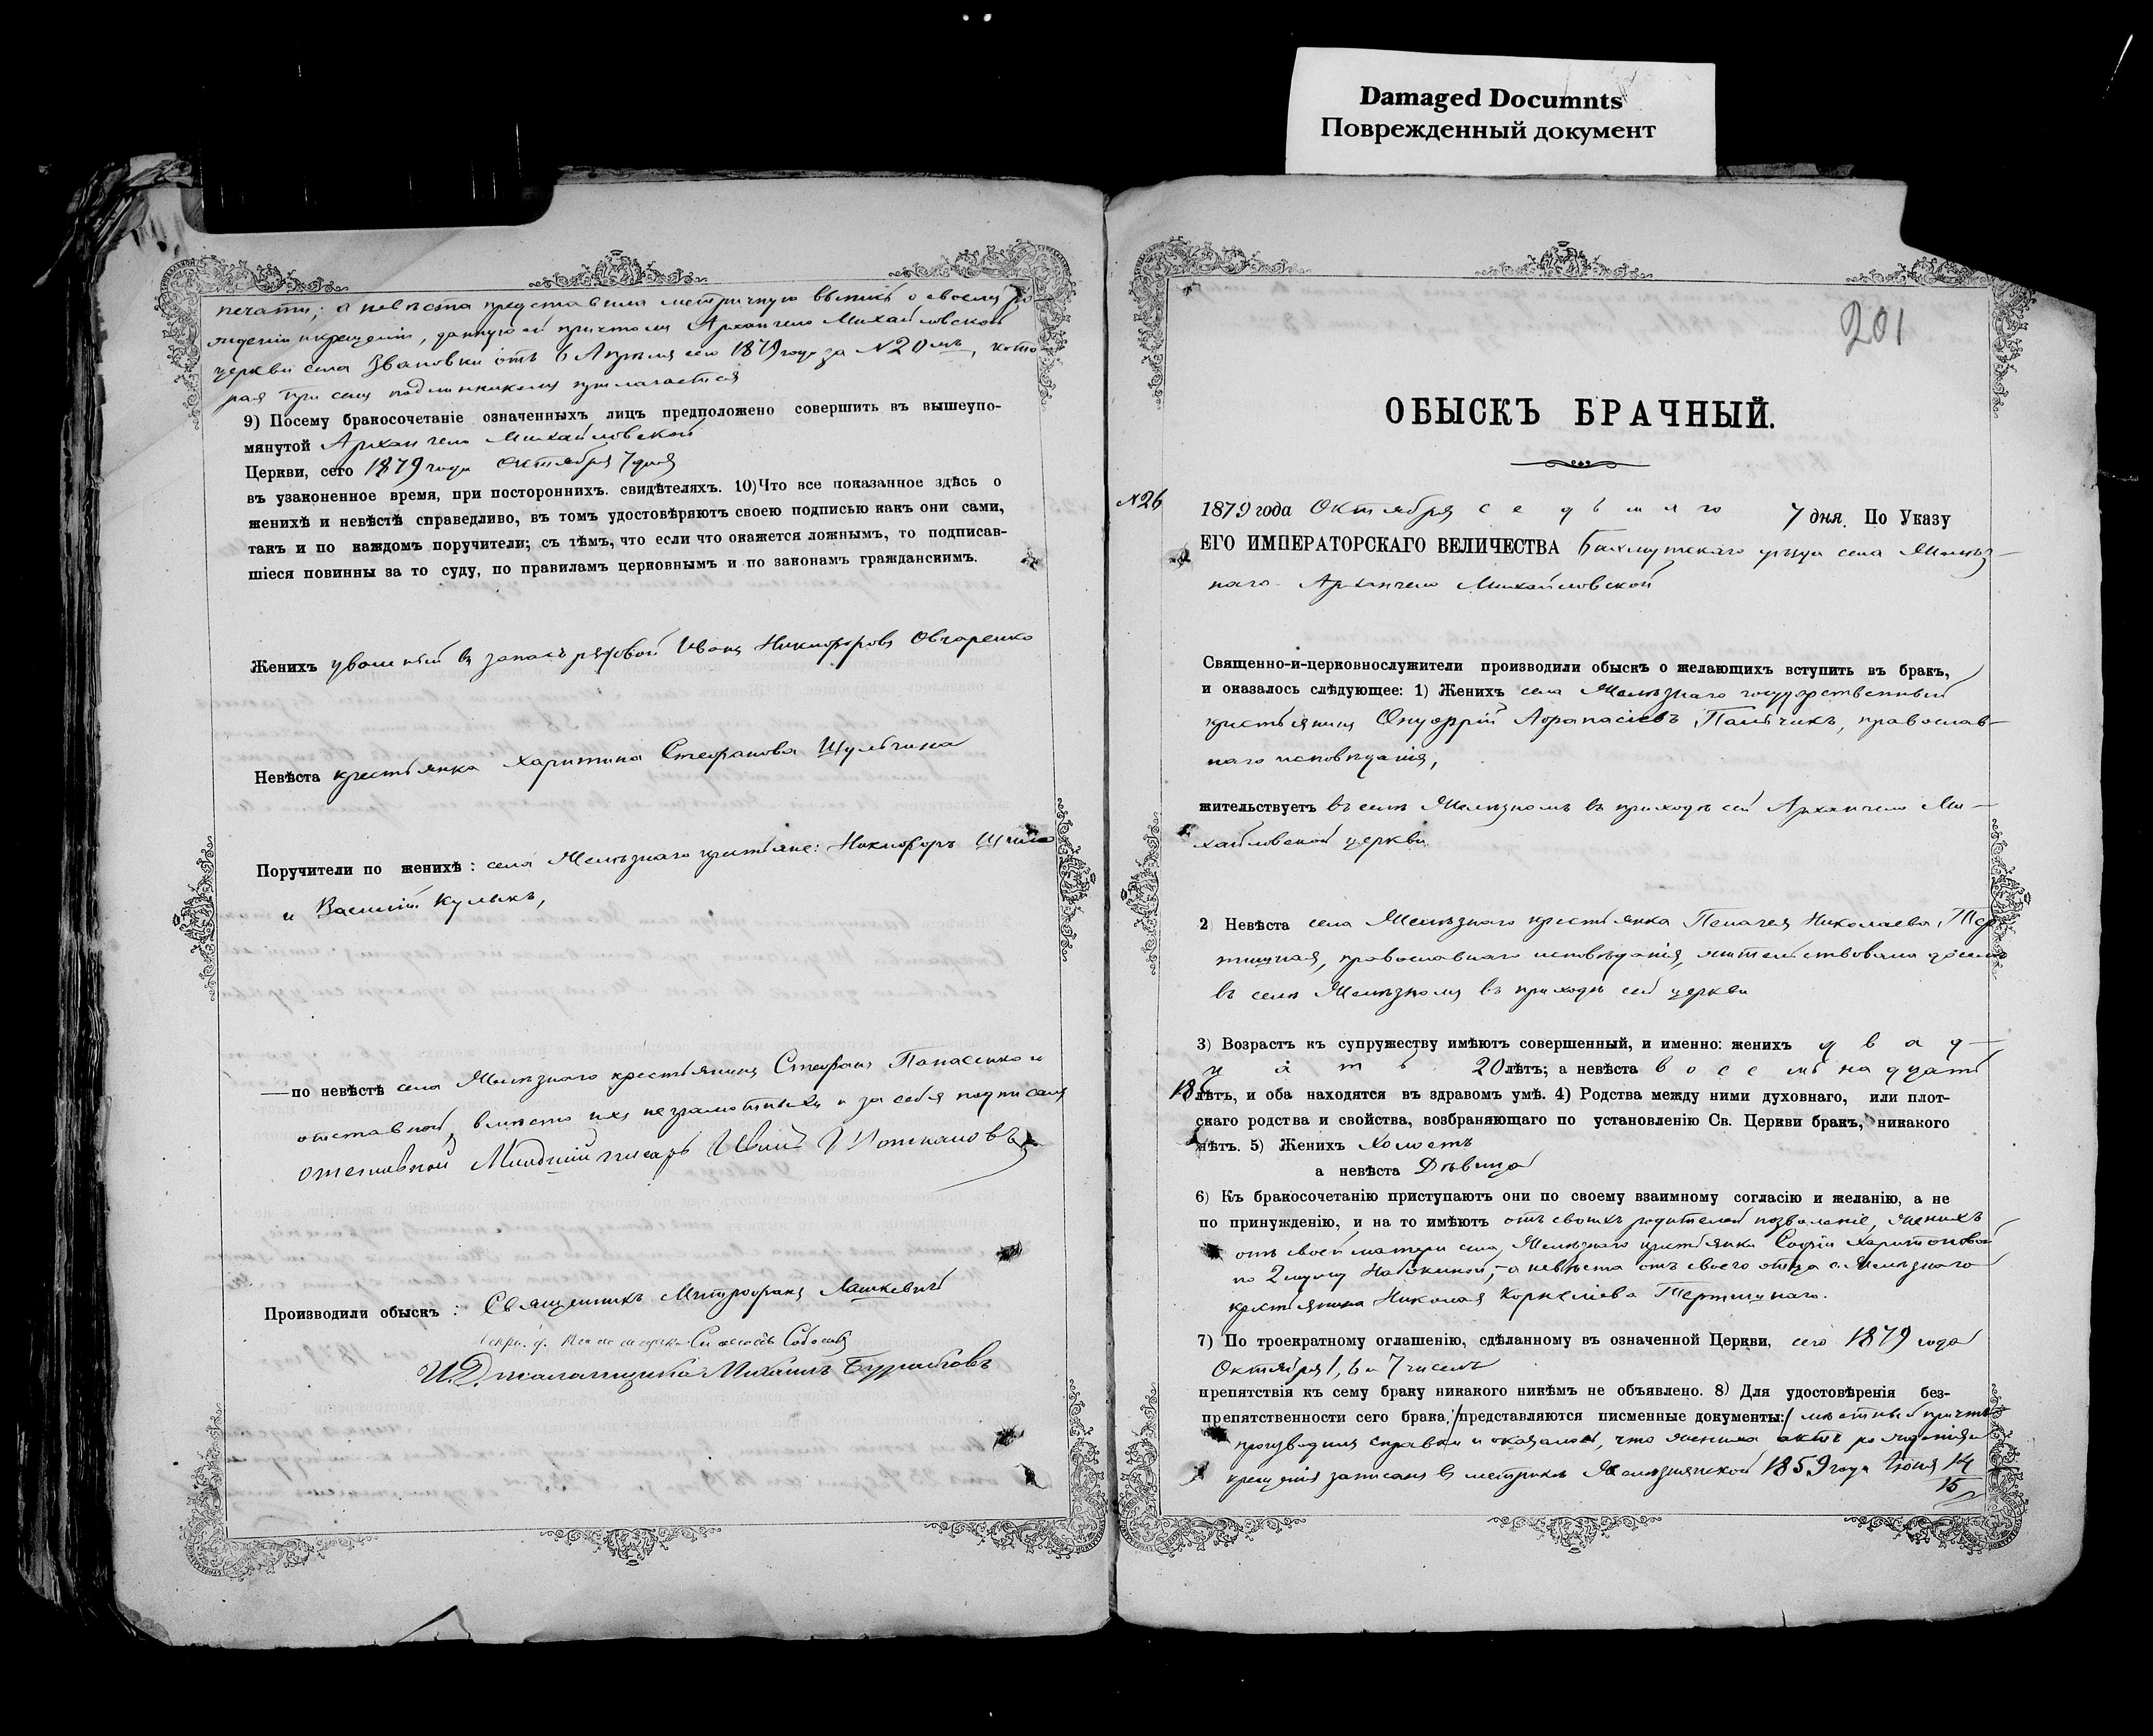 Damaged Documnts
Поврежденный документ
печати; а невѣста представила метричную выпись о своемъ ро-
жденіи и крещеніи, данную ей причтомъ Архангело Михайловской
церкви села Звановки отъ 6 Апрѣля сего 1879 года за №20мъ, кото-
рая при семъ подлинникомъ прилагается
9) Посему бракосочетаніе означенныхъ лицъ предположено совершить въ вышеупо-
мянутой Архангело Михайловской
Церкви, сего 1879 года Октября 7 дня
въ узаконенное время, при постороннихъ. свидѣтеляхъ. 10) Что все показанное здѣсь о
женихѣ и невѣстѣ справедливо, въ томъ удостовѣряютъ своею подписью какъ они сами,
такъ и по каждомъ поручители; съ тѣмъ, что если что окажется ложнымъ, то подписав-
шіеся повинны за то суду, по правиламъ церковнымъ и по законамъ гражданскимъ.
Женихъ уволеный въ запасъ рядовой Иванъ Никифоровъ Овчаренко
Невѣста крестьянка Харитина Стефанова Шульгина
Поручители по женихѣ: села Желѣзнаго крестьяне: Никифоръ
и Василій Куликъ,
по невѣстѣ села Желѣзнаго крестьянинъ Стефанъ Панасенко и
отставной, вмѣсто ихъ неграмотныхъ и за себя подписалъ
отставной Младшій писарь Иванъ
Производили обыскъ: Священникъ Митрофанъ Лашкевичъ
И.Д. псаломщика Михаилъ
201
ОБЫСКЪ БРАЧНЫЙ.
№26
1879 года Октября седьмаго 7 дня. По Указу
ЕГО ИМПЕРАТОРСКАГО ВЕЛИЧЕСТВА Бахмутскаго уѣзда села Желѣз-
наго Архангело Михайловской
Священно-и-церковнослужители производили обыскъ о желающихъ вступить въ бракъ,
и оказалось слѣдующее: 1) Женихъ села Желѣзнаго государственный
крестьянинъ Онуфрій Афанасіевъ Пальчикъ, православ-
наго исповѣданія,
жительствуетъ въ селѣ Желѣзномъ въ приходѣ сей Архангело Ми-
хайловской церкви
2 Невѣста села Желѣзнаго крестьянка Пелагея Николаева Тер-
тишная, православнаго исповѣданія, жительствовала доселѣ
въ селѣ Желѣзномъ въ приходѣ сей церкви
3) Возрастъ къ супружеству имѣютъ совершенный, и именно: женихъ двад-
цать 20 лѣтъ; а невѣста восемьнадцать
18 лѣтъ, и оба находятся въ здравомъ умѣ. 4) Родства между ними духовнаго, или плот-
скаго родства и свойства, возбраняющаго по установленію Св. Церкви бракъ, никакого
нѣтъ. 5) Женихъ Холостъ
а невѣста Дѣвица
6) Къ бракосочетанію приступаютъ они по своему взаимному согласію и желанію, а не
по принужденію, и на то имѣютъ отъ своихъ родителей позволеніе, женихъ
отъ своей матери села Желѣзнаго крестьянки Софіи Харитоновой
по 2 мужу Набокиной, а невѣста отъ своего отца с. Желѣзнаго
крестьянина Николая Корнеліева Тертишнаго.
7) По троекратному оглашенію, сдѣланному въ означенной Церкви, сего 1879 года
Октября 1, 6 и 7 чиселъ
препятствія къ сему браку никакого никѣмъ не объявлено. 8) Для удостовѣренія без-
препятственности сего брака, представляются писменные документы: мѣстный причтъ
производилъ справки и оказалось, что жениха актъ рожденія
крещенія записанъ въ метрикѣ Желѣзнянской 1859 года Іюня 14
15